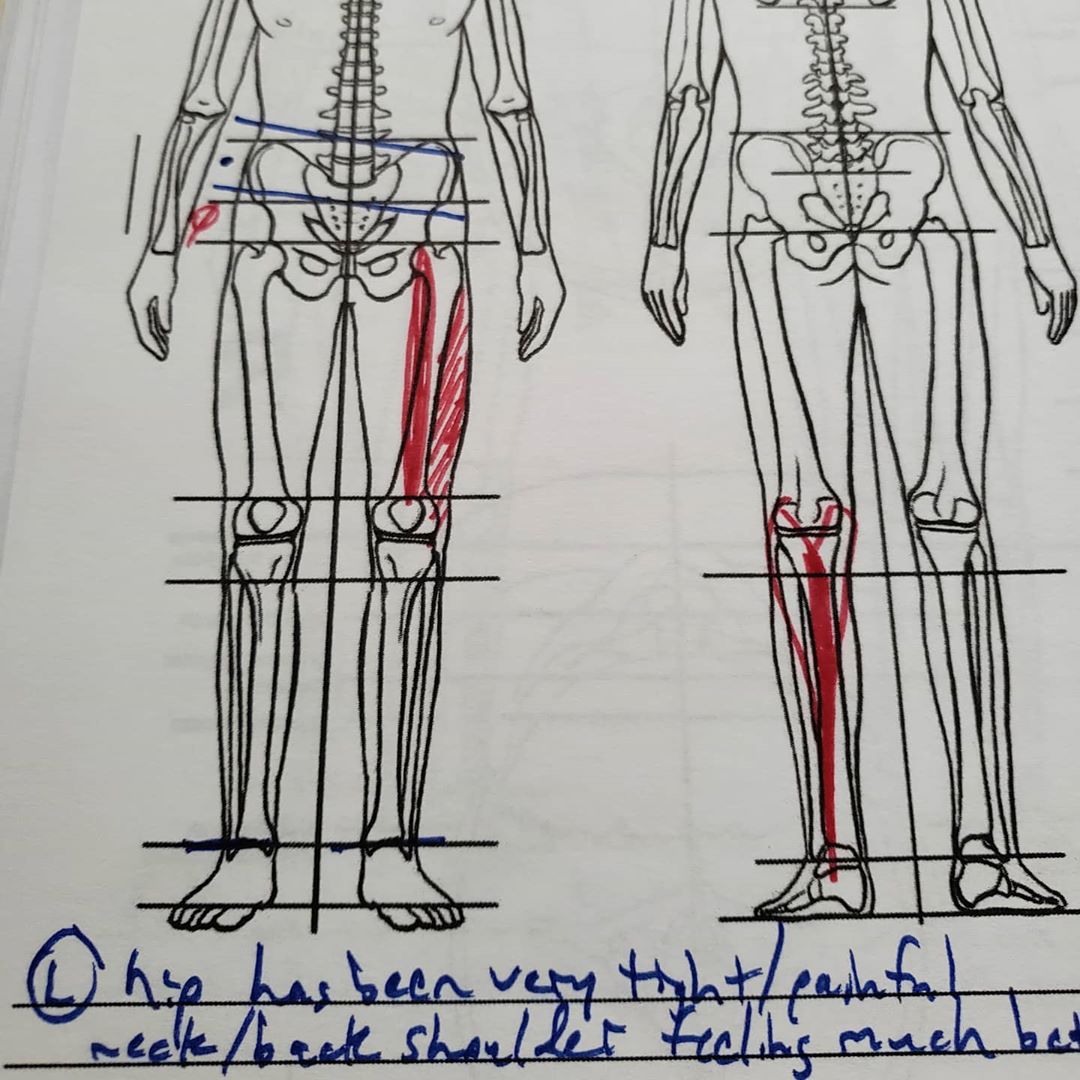 Ⓛ hip has been very tight/painful
neck/back shoulder feeling much bet